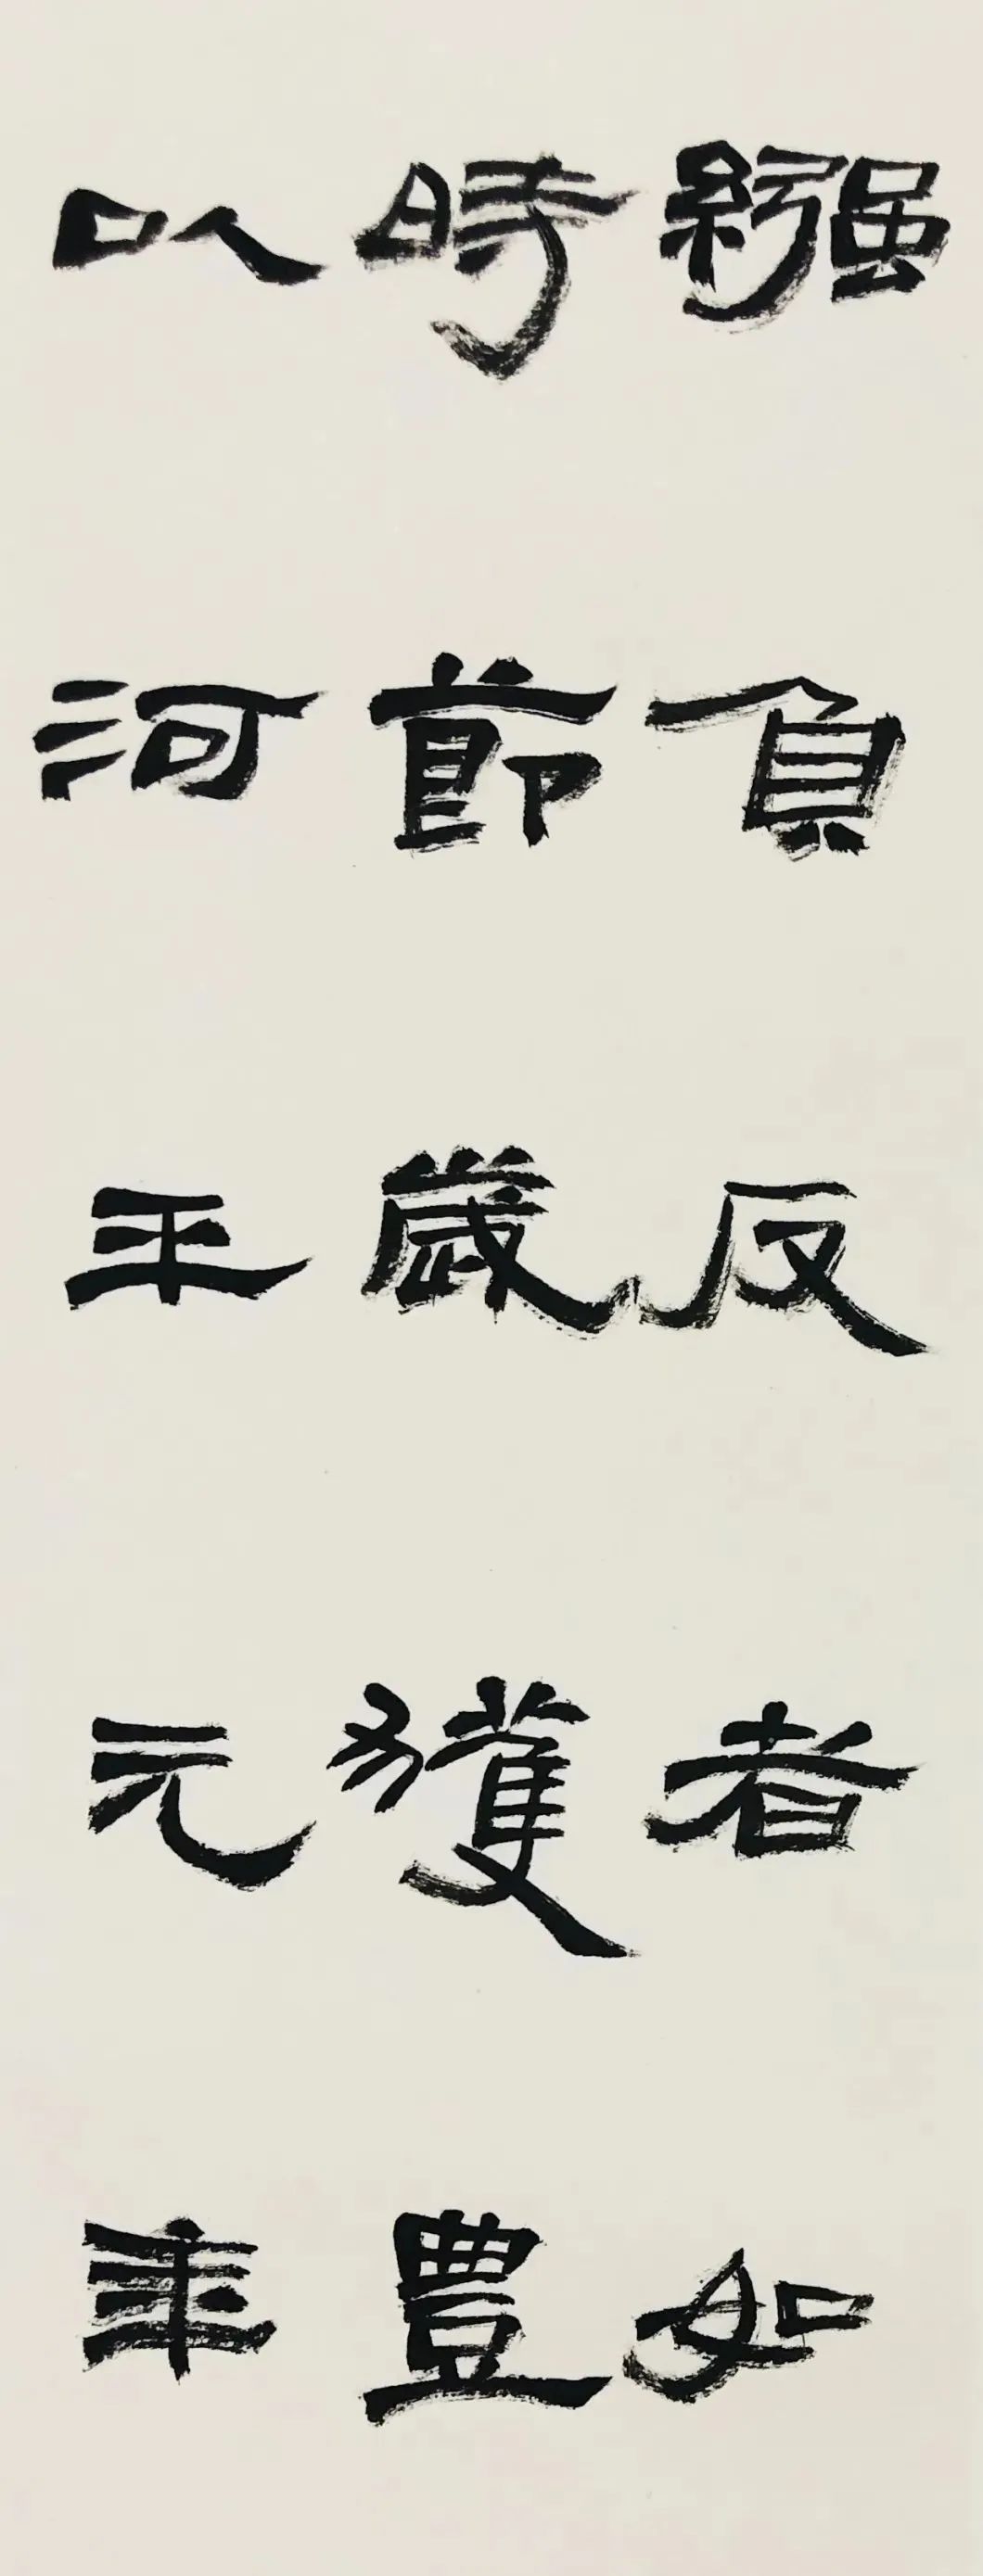 繈負反者如
時節歲獲豐
以河平元年